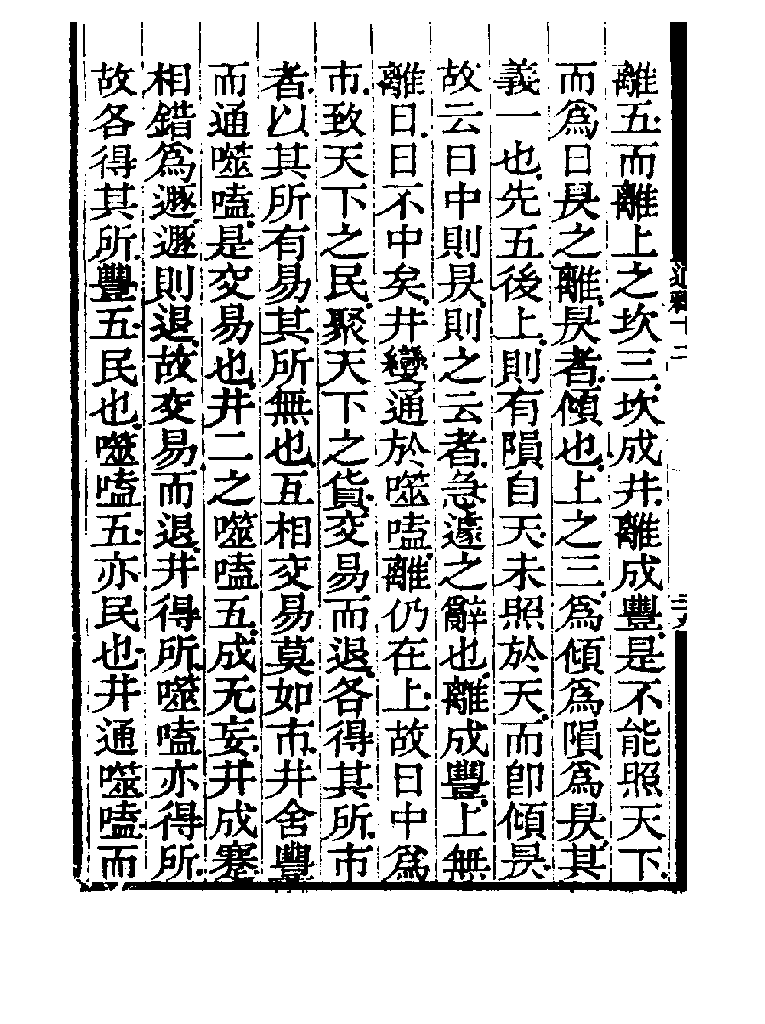 離五而離上之坎三坎成井離成豐是不能照天下
而爲日昃之離昃者傾也上之三爲傾爲隕爲昃其
義一也先五後上則有隕自天未照於天而卽傾昃
故云日中則昃則之云者急遽之辭也離成豐上無
離日日不中矣井變通於噬嗑離仍在上故日中爲
市致天下之民聚天下之貨交易而退各得其所市
者以其所有易其所無也互相交易莫如市井舍豐
而通噬嗑是交易也井二之噬嗑五成无妄井成蹇
相錯爲遯遯則退故交易而退井得所噬嗑亦得所
故各得其所豐五民也噬嗑五亦民也井通噬嗑而
通釋十二